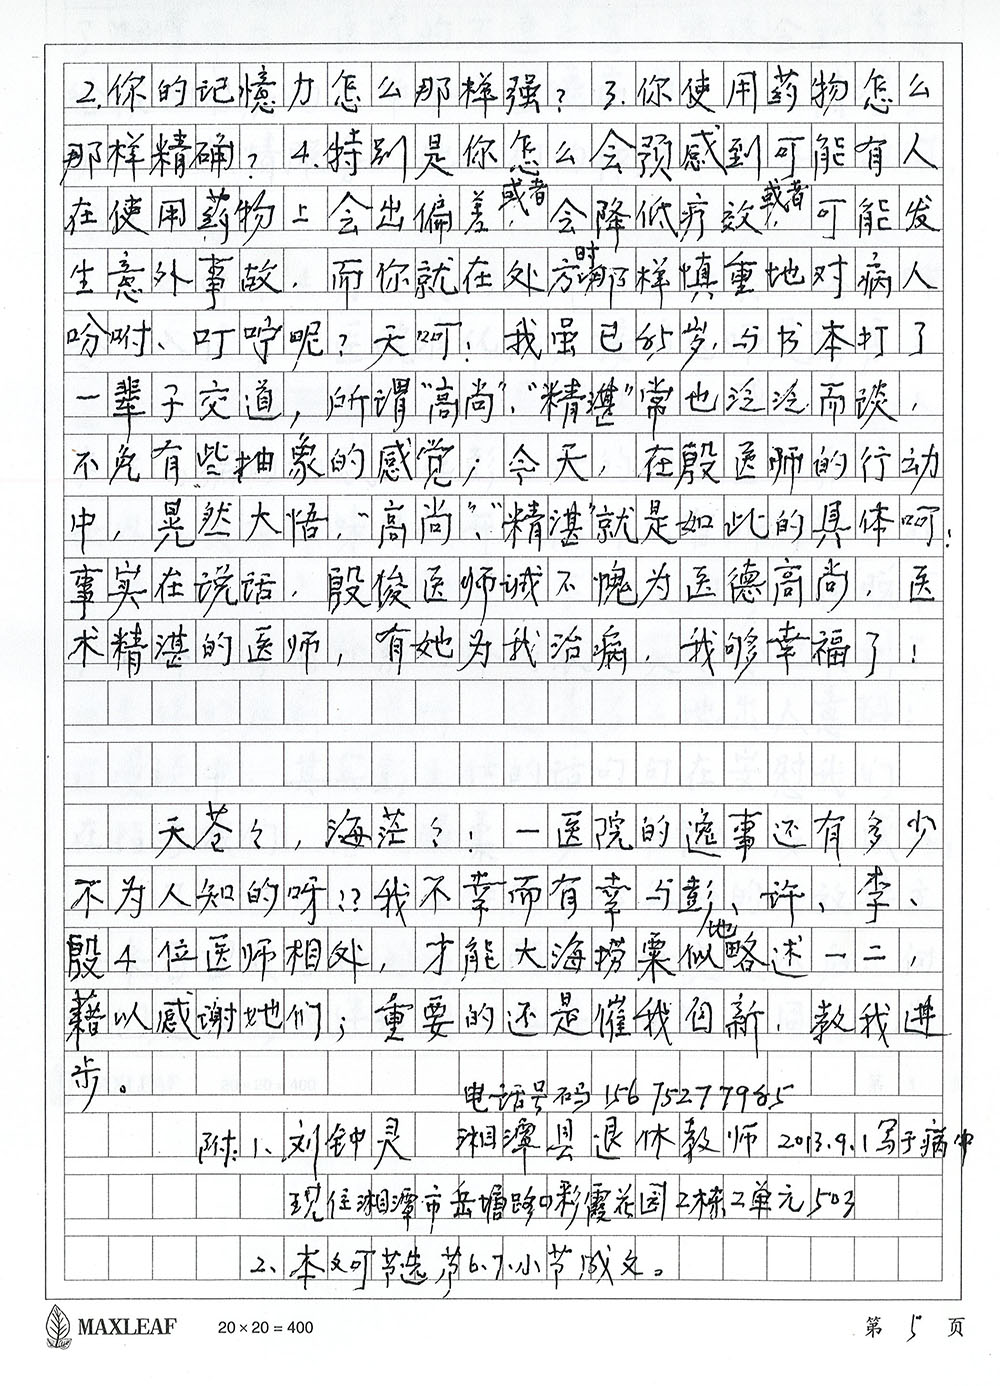 2.你的记憶力怎么那样强？3.你使用药物怎么
那样精确？4.特别是你怎么会预感到可能有人
在使用药物上会出偏差，或者会降低疗效，或者可能发
生意外事故，而你就在处方时那样慎重地对病人
吩咐、叮咛呢？天呵！我虽已85岁，与书本打了
一辈子交道，所谓"高尚"、"精湛"常也泛泛而谈，
不免有些抽象的感觉；今天，在殷医师的行动
中，晃然大悟，"高尚"、"精湛"就是如此的具体呵！
事实在说话，殷俊医师诚不愧为医德高尚，医
术精湛的医师，有她为我治病，我够幸福了！
天苍々，海茫々！一医院的逸事还有多少
不为人知的呀！？我不幸而有幸与彭、许、李、
殷4位医师相处，才能大海捞粟似地略述一二，
藉以感谢她们；重要的还是催我自新，教我进
步。
电话号码 15675277985
附：1、刘钟灵 湘潭县退休教师 2013.9.1写于病中
现住湘潭市岳塘路口彩霞花园2栋2单元503
2、本文可节选节6、7小节成文。
MAXLEAF 20×20=400 第5页